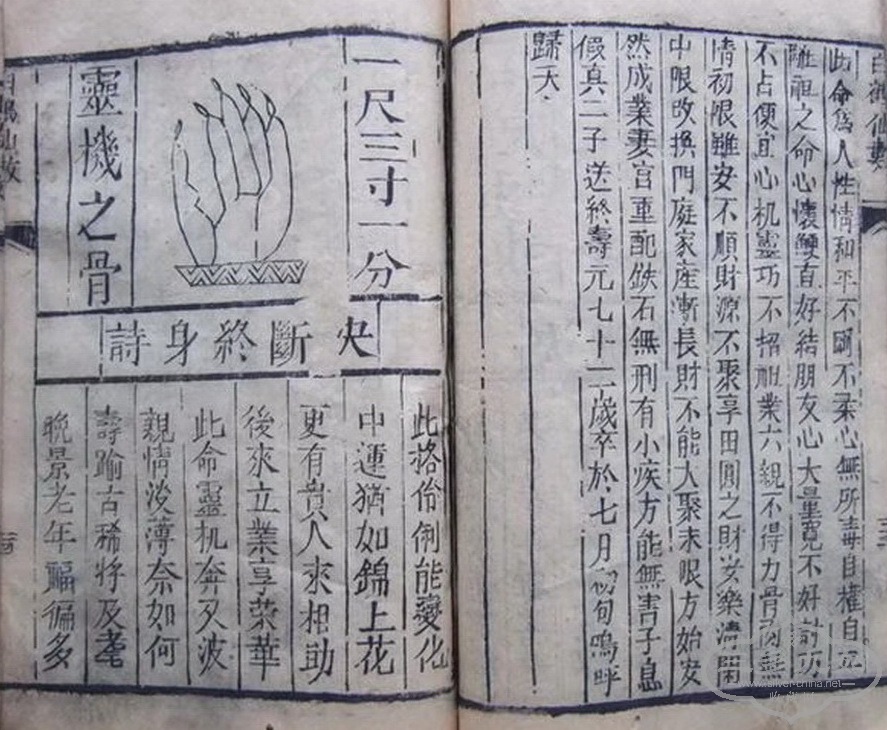 白鶴仙數
此命為人性情和平不剛不柔心無所毒自權自
離祖之命心懷鯁直好結朋友心大量寬不好
不占便宜心机靈巧不招祖業六親不得力骨肉無
情初限雖安不順財源不聚享田圓之財安樂清閑
中限改換門庭家產漸長財不能大聚末限方始安
然成業妻宮重配鉄石無刑有小疾方能無害子息
假真二子送終壽元七十二歲卒於七月初旬嗚呼
歸天
一尺三寸一分
靈機之骨
央斷終身詩
此格伶俐能變化
中運猶如錦上花
更有貴人來相助
後來立業享荣華
此命靈机奔歹波
親情淡薄奈如何
壽踰古稀將及耄
晚景老年福徧多
白鶴仙數
www.silver-china.net